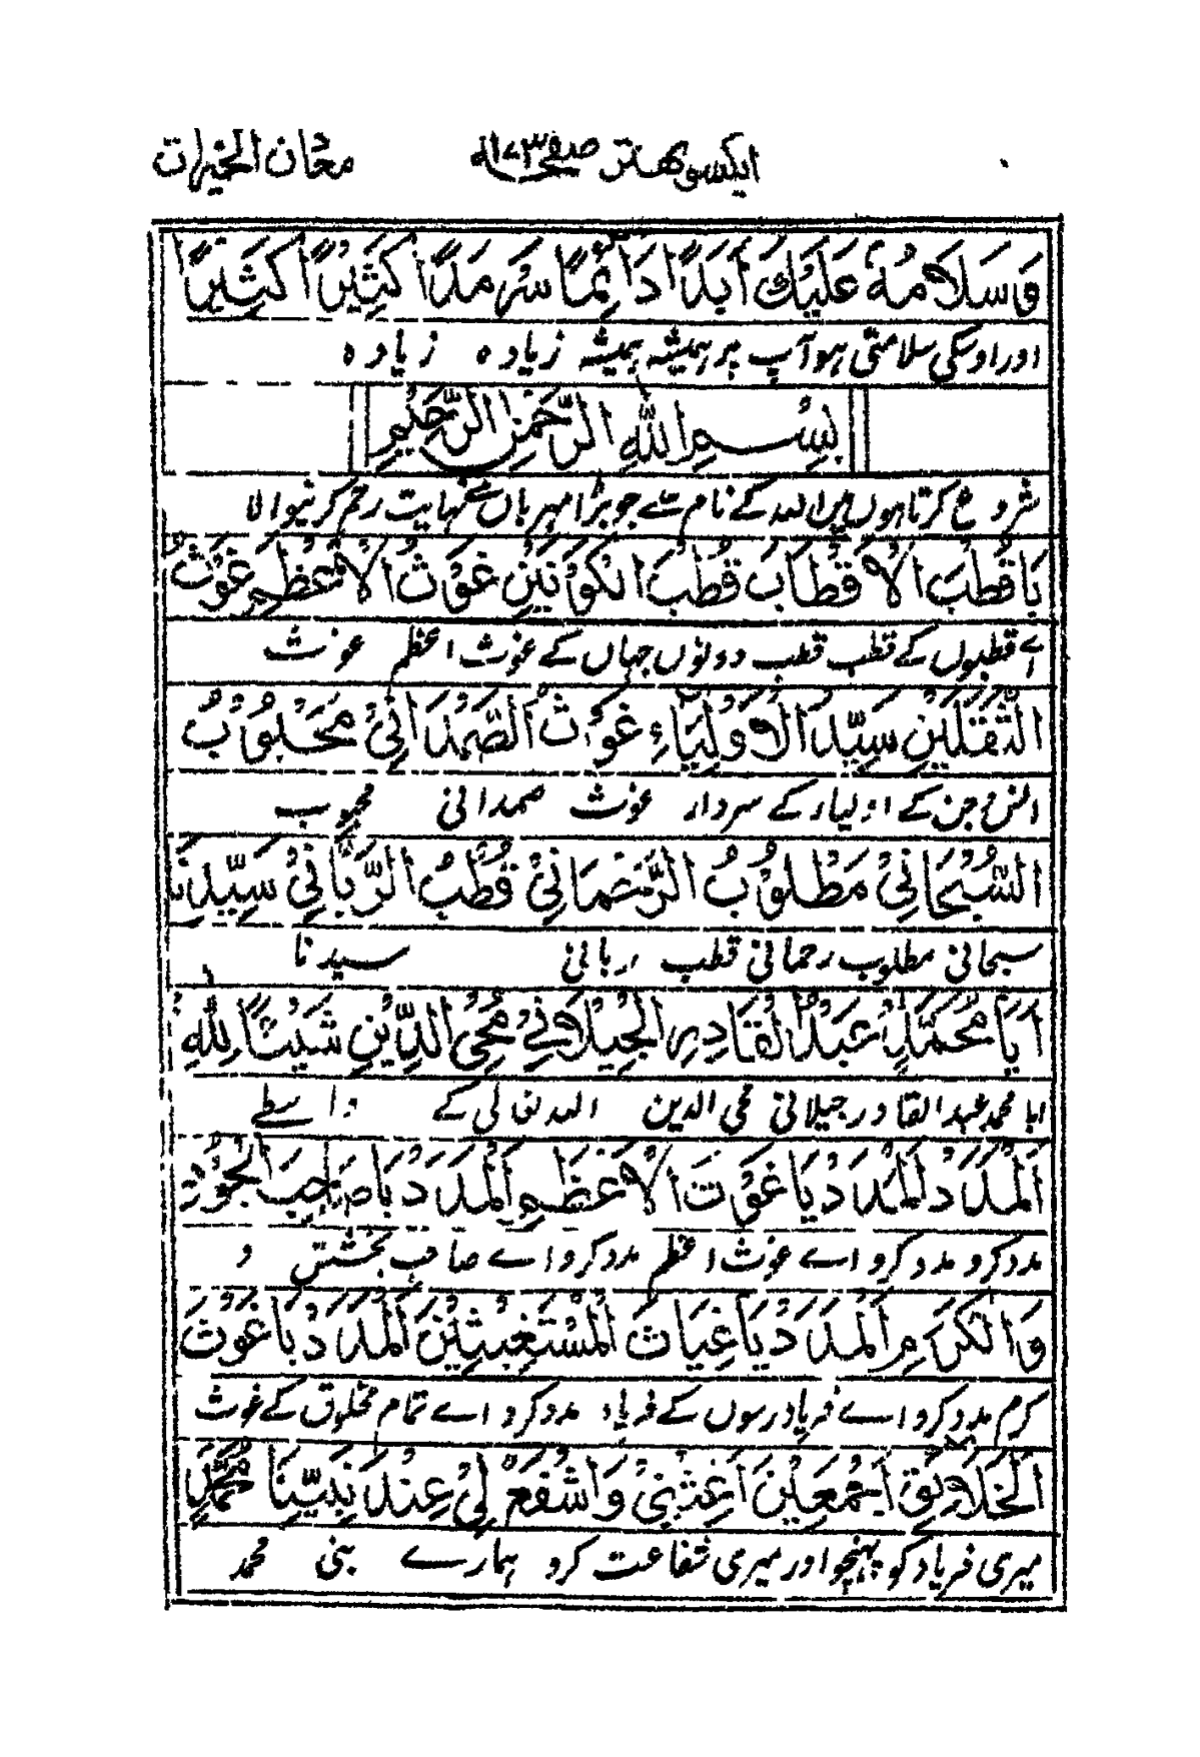 ایکسو تهتر صفحہ ۱۷۳ معان الخیرات
وَسَلَامُهُ عَلَيْكَ أَبَدًا دَائِمًا سَرْمَدًا كَثِيْرًا كَثِيْرًا
اور اوسکی سلامتی ہو آپ پر ہمیشہ ہمیشہ زیادہ زیادہ
بِسْمِ اللهِ الرَّحْمٰنِ الرَّحِيْمِ
شروع کرتا ہوں میں اللہ کے نام سے جو بڑا مہربان ہے نہایت رحم کرنیوالا
يَا قُطْبَ الْاَقْطَابِ قُطْبَ الْكَوْنَيْنِ غَوْثُ الْاَعْظَمِ غَوْثُ
اے قطبوں کے قطب قطب دونوں جہاں کے غوث اعظم غوث
الثَّقَلَيْنِ سَيِّدُ الْاَوْلِيَاءِ غَوْثُ الصَّمْدَانِيْ مَحْبُوْبُ
انس و جن کے اولیاء کے سردار غوث صمدانی محبوب
السُّبْحَانِيْ مَطْلُوْبُ الرَّحْمَانِيْ قُطْبُ الرَّبَّانِيْ سَيِّدِنَا
سبحانی مطلوب رحمانی قطب ربانی سیدنا
اَبَا مُحَمَّدٍ عَبْدُ الْقَادِرِ الْجِيْلَانِيْ مُحْيُ الدِّيْنِ شَيْئًا لِلّٰهِ
ابا محمد عبد القادر جیلانی محی الدین اللہ تعالی کے واسطے
اَلْمَدَدْ اَلْمَدَدْ يَا غَوْثَ الْاَعْظَمِ اَلْمَدَدْ يَا صَاحِبَ الْجُوْدِ
مدد کرو مدد کرو اے غوث اعظم مدد کرو اے صاحب بخشش و
وَالْكَرَمِ اَلْمَدَدْ يَا غِيَاثَ الْمُسْتَغِيْثِيْنَ اَلْمَدَدْ يَا غَوْثَ
کرم مدد کرو اے فریاد رسوں کے فریاد مدد کرو اے تمام مخلوق کے غوث
الْخَلَائِقِ اَجْمَعِيْنَ اَغِثْنِيْ وَاشْفَعْ لِيْ عِنْدَ نَبِيِّنَا مُحَمَّدٍ
میری فریاد کو پہنچو اور میری شفاعت کرو ہمارے نبی محمد